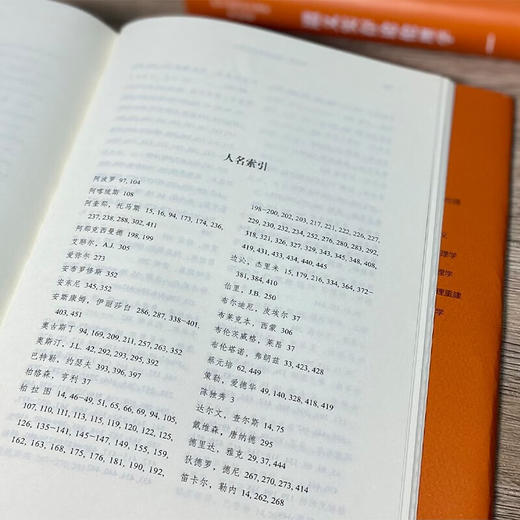 人名索引
阿波罗 97, 104
阿喀琉斯 108
阿奎那, 托马斯 15, 16, 94, 173, 174, 236,
237, 238, 288, 302, 411
阿那克西曼德 198, 199
艾耶尔, A.J. 305
爱弥尔 273
安布罗修斯 352
安东尼 345, 352
安斯康姆, 伊丽莎白 286, 287, 338-401,
403, 451
奥古斯丁 94, 169, 209, 211, 257, 263, 352
奥斯汀, J.L. 42, 292, 293, 295, 392
巴特勒, 约瑟夫 393, 396, 397
柏格森, 亨利 37
柏拉图 14, 46-49, 51, 65, 66, 69, 94, 105,
107, 110, 111, 113, 115, 119, 120, 122, 125,
126, 135-141, 145-147, 149, 155, 159,
162, 163, 168, 175, 176, 181, 190, 192,
198-200, 202, 203, 217, 221, 222, 226, 227,
229, 230, 232, 234, 252, 276, 280, 283, 292,
318, 321, 326, 327, 329, 343, 345, 348, 408,
419, 431, 433, 434, 440, 445
边沁, 杰里米 15, 179, 216, 334, 364, 372-
381, 384, 410
伯里, J.B. 250
布尔迪厄, 皮埃尔 37
布莱克本, 西蒙 306
布伦茨威格, 莱昂 37
布伦塔诺, 弗朗兹 33, 423, 428
蔡元培 62, 449
策勒, 爱德华 49, 140, 328, 418, 419
陈独秀 3
达尔文, 查尔斯 14, 75
戴维森, 唐纳德 295
德里达, 雅克 29, 37, 444
狄德罗, 德尼 267, 270, 273, 414
笛卡尔, 勒内 14, 262, 268